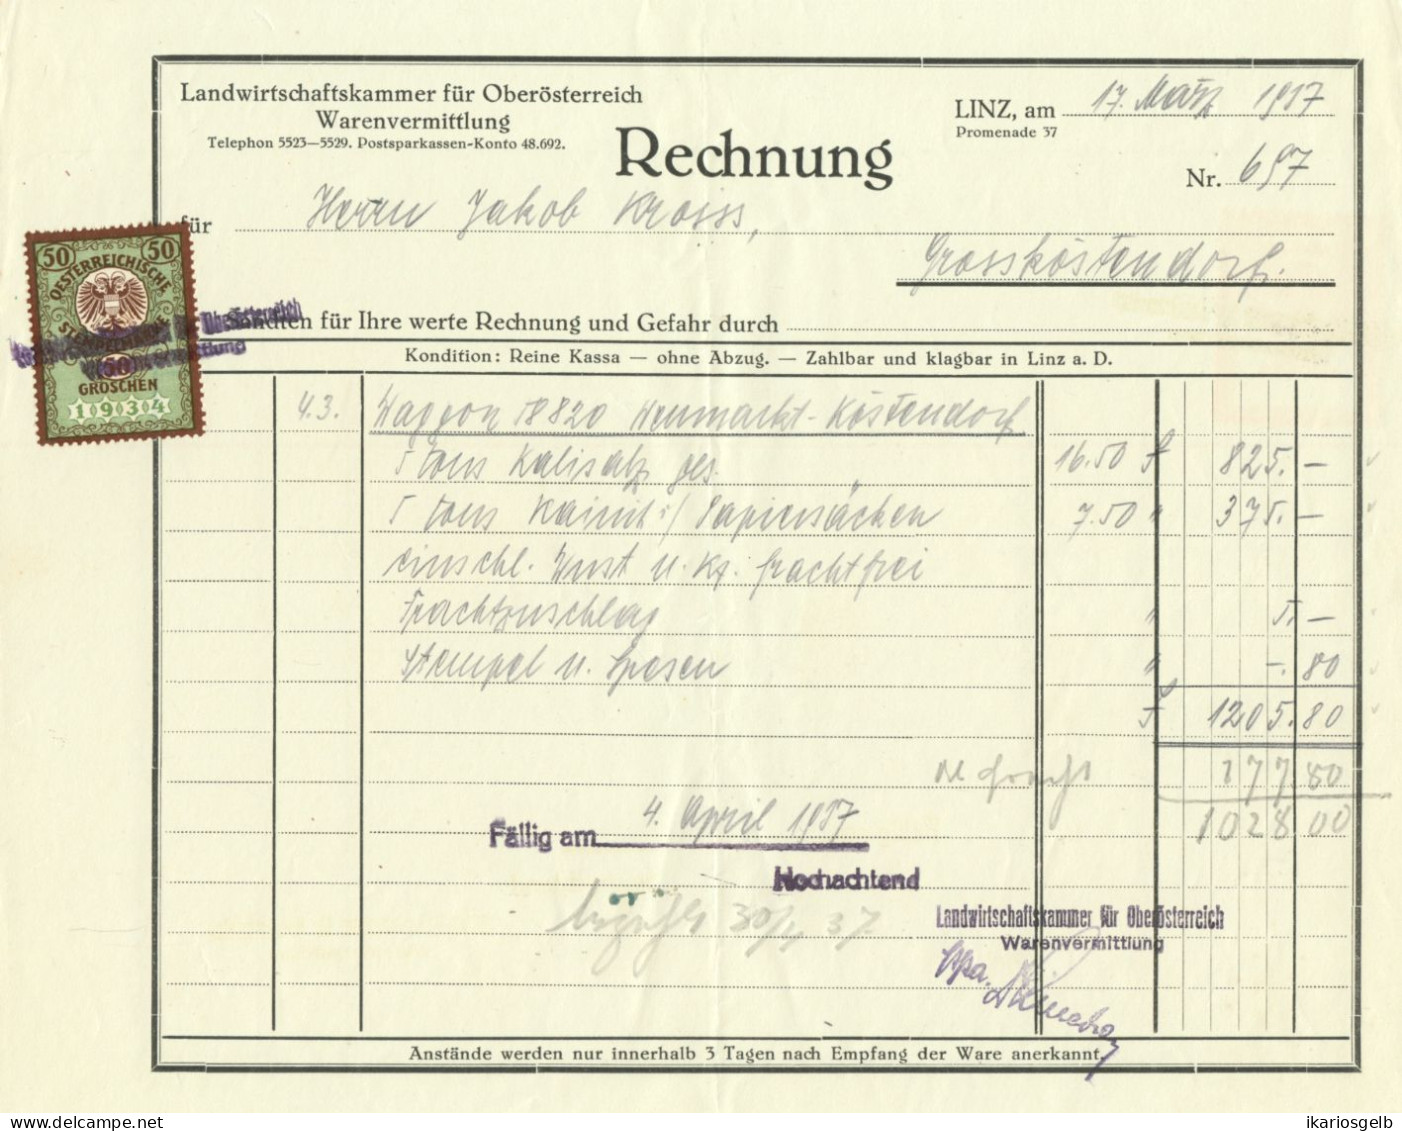 Landwirtschaftskammer für Oberösterreich
Warenvermittlung
Telephon 5523—5529. Postsparkassen-Konto 48.692.
Rechnung
LINZ, am 17. März 1937
Promenade 37
Nr. 697
für Herrn Jakob Kroiss,
Grossköstendorf.
50 50
OESTERREICHISCHE
STEMPELMARKE
50
GROSCHEN
1934
Sandten für Ihre werte Rechnung und Gefahr durch
Kondition: Reine Kassa — ohne Abzug. — Zahlbar und klagbar in Linz a. D.
4.3. Waggon 18820 Neumarkt-Köstendorf
5 tons Kalisalz ges. 16.50 S 825.—
5 tons Kainit i/ Papiersäcken 7.50 " 375.—
einschl. Wust u. Kg. frachtfrei
Frachtzuschlag " 5.—
Stempel u. Spesen " —.80
S 1205.80
Fracht 177.80
1028 00
Fällig am 4. April 1937
Hochachtend
bezahlt 30/4 37
Landwirtschaftskammer für Oberösterreich
Warenvermittlung
ppa.
Anstände werden nur innerhalb 3 Tagen nach Empfang der Ware anerkannt.
ikariosgelb